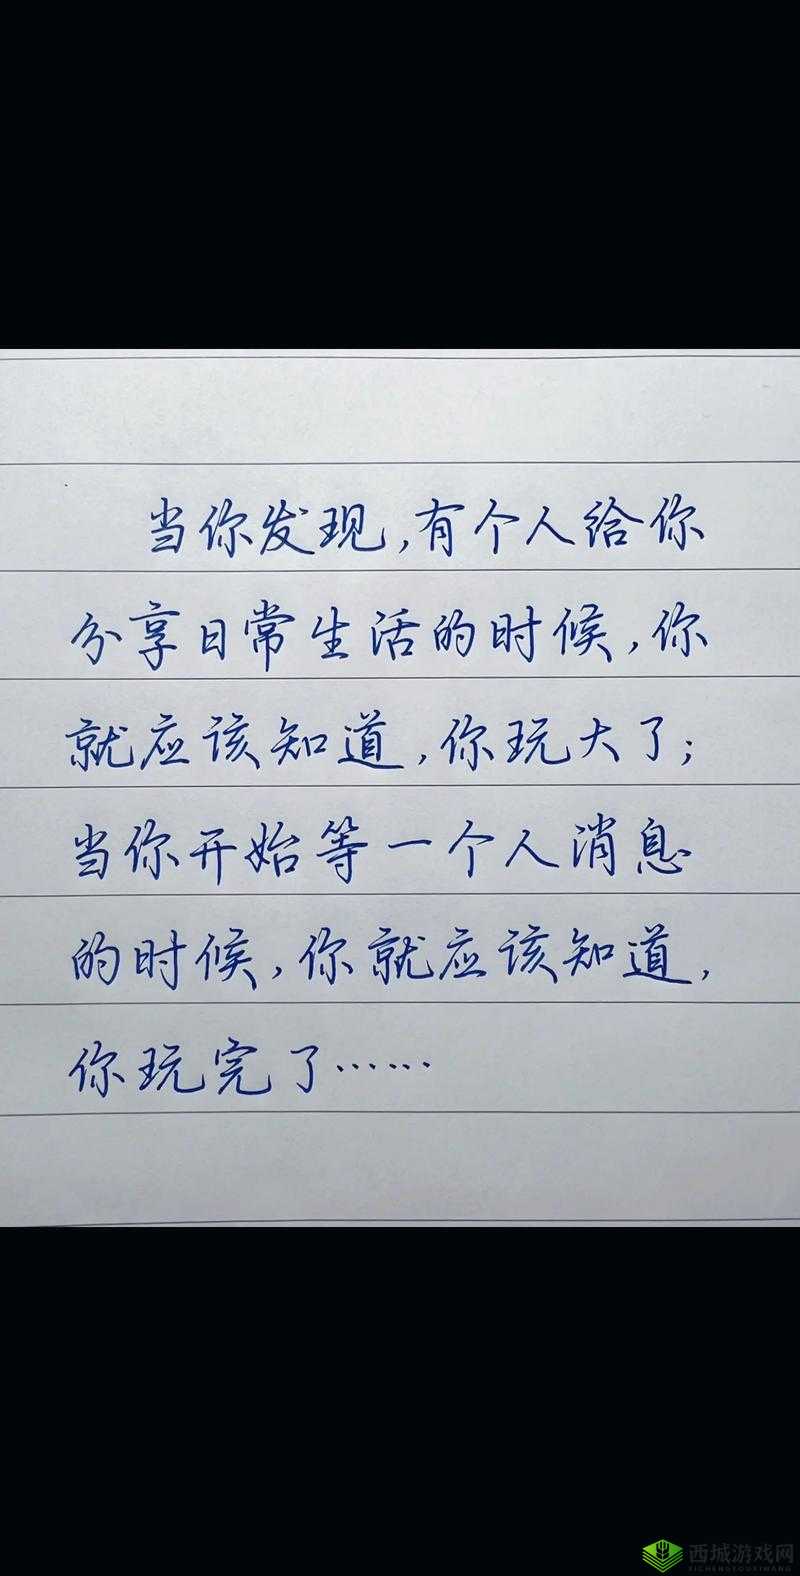 当你发现,有个人给你
分享日常生活的时候,你
就应该知道,你玩大了;
当你开始等一个人消息
的时候,你就应该知道,
你玩完了……
西城游戏网
XICHENGYOUXIWANG